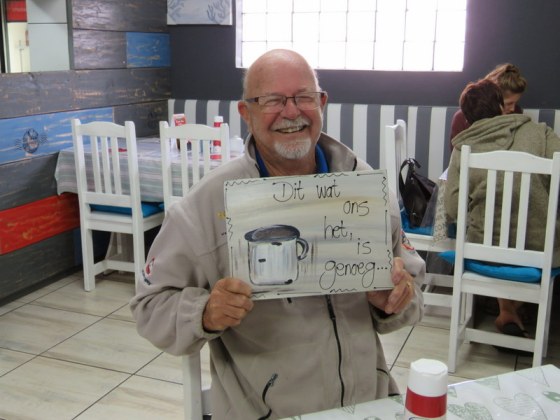 Dit wat
ons
het, is
genoeg...